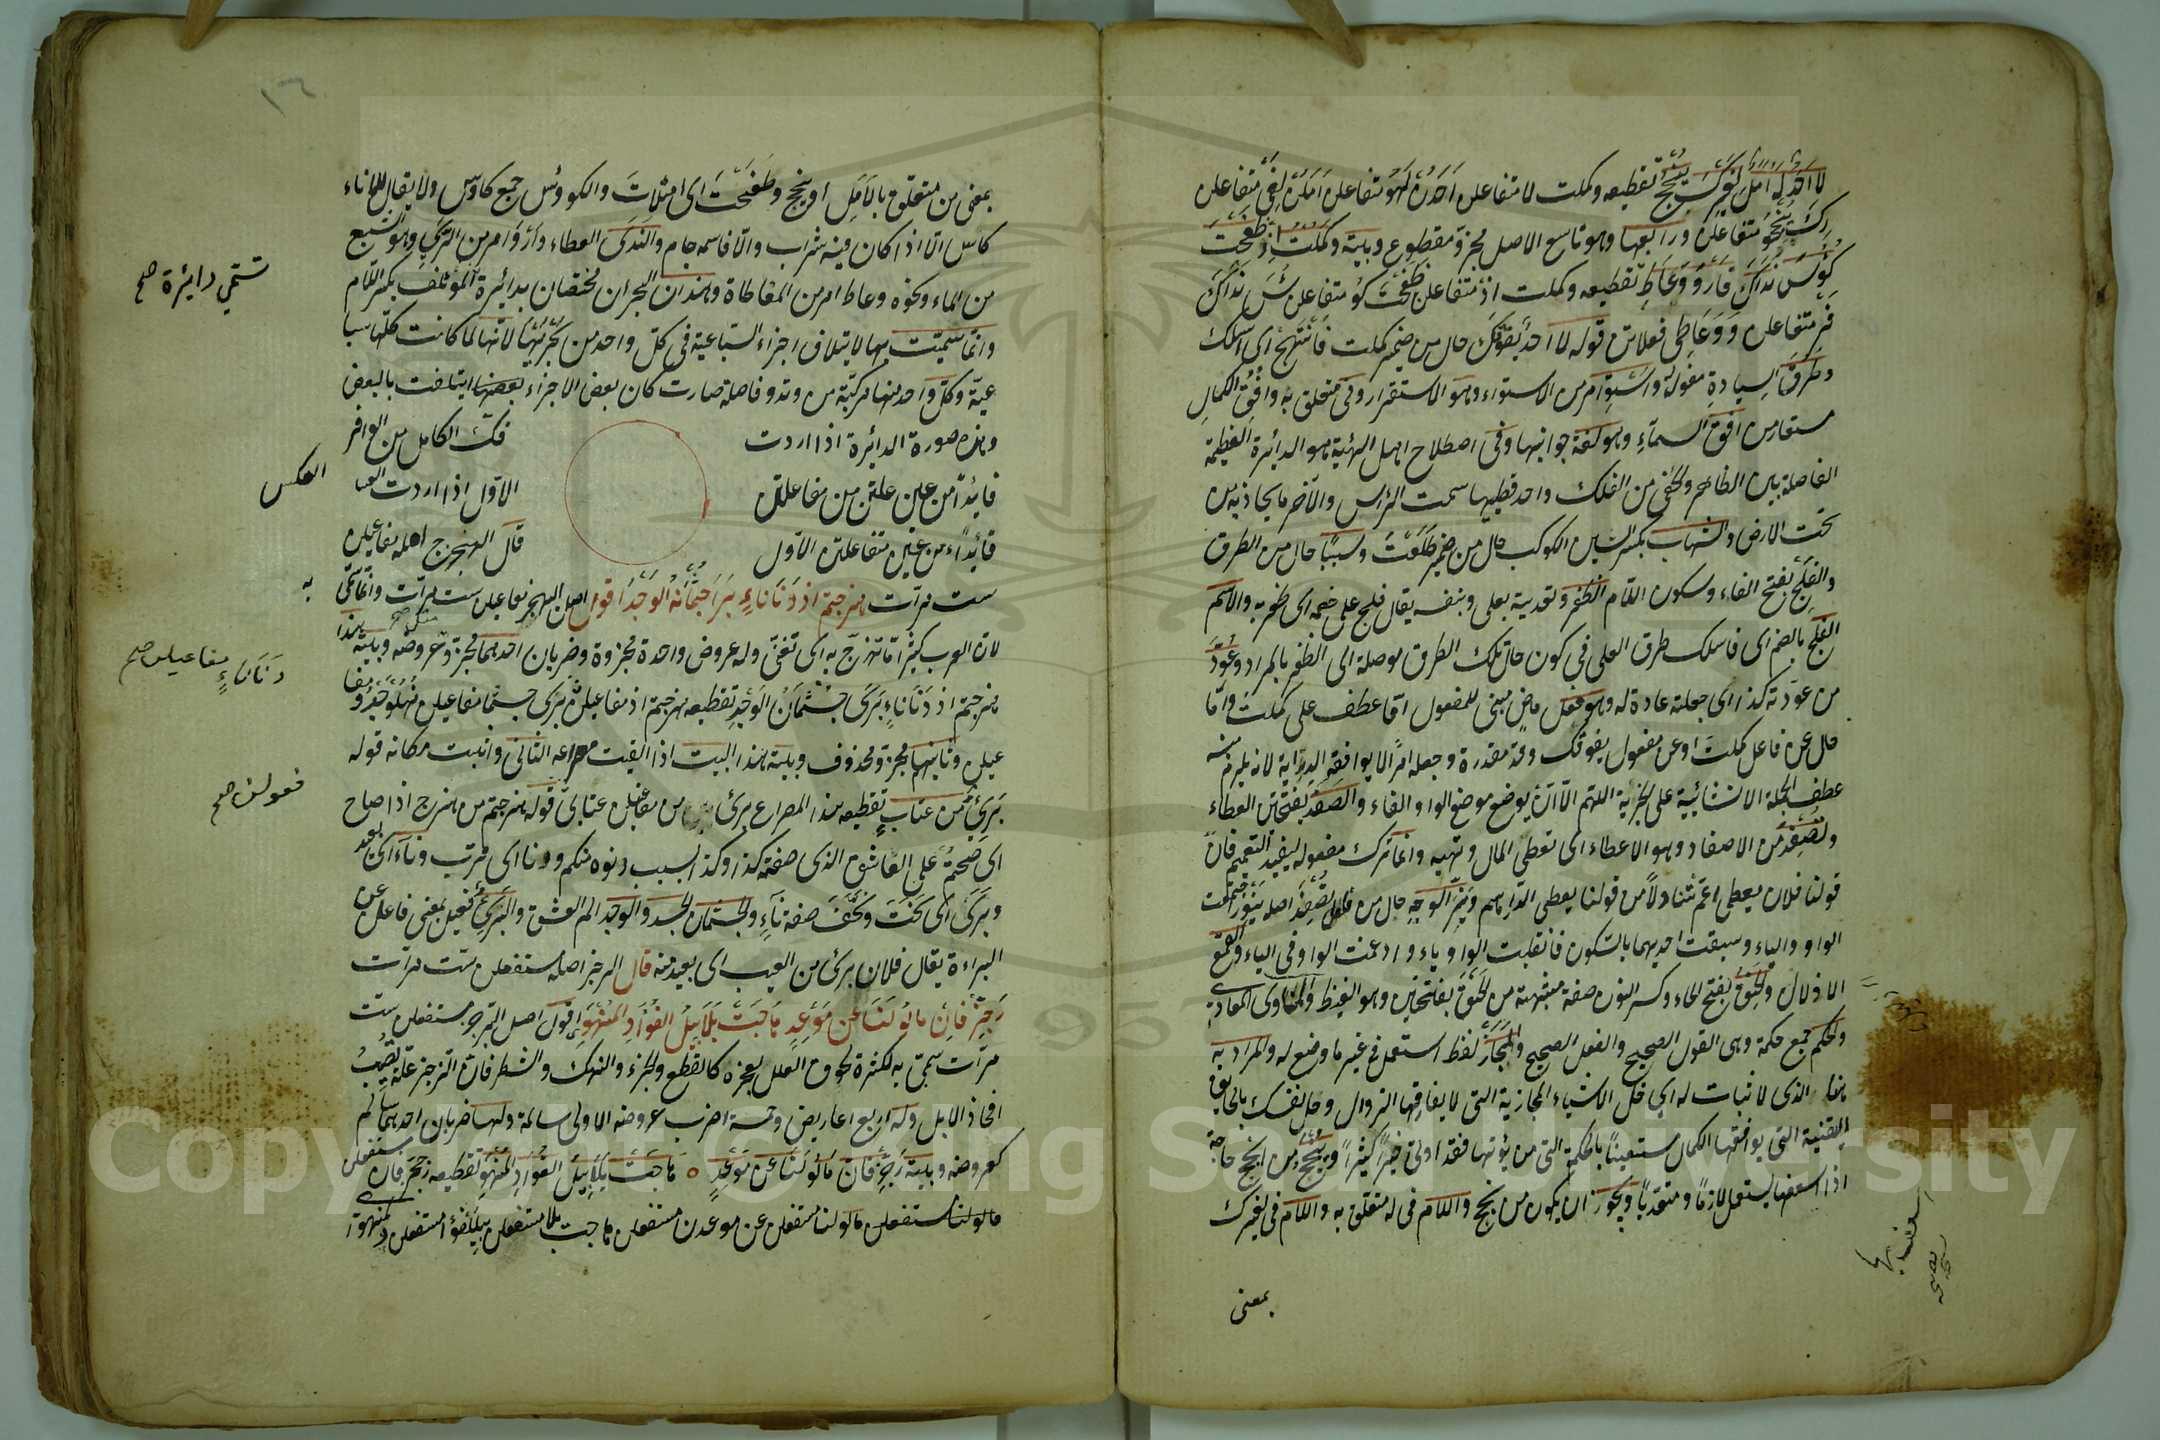 لا احد له امل لغيرك ينجح تقطيعه وكملت لا متفاعلن احدن لهو متفاعلن املن لغي متفاعلن
رك ينجحو متفاعلن ورابعها وهو تاسع الاصل مجزو مقطوع وبيته وكملت اذ طفحت
كؤس نداك فارو وعاط تقطيعه وكملت اذ متفاعلن طفحت كو متفاعلن س نداك
فر متفاعلن و وعاطي فعلاتن قوله لا احد يفوقك حال من ضمير كملت فانتهج اي اسلك
وطرق السيادة مفوله واستو امر من الاستواء وهو الاستقرار وفي متعلق به وافق الكمال
مستعار من افق السماء وهو لغة جوانبها وفي اصطلاح اهل الهيئة هو الدائرة العظيمة
الفاصلة بين الظاهر والخفي من الفلك واحد قطبيها سمت الراس والآخر ما يحاذيه من
تحت الارض والشهاب بكسر الشين الكوكب حال من ضمير طلعت وسببا حال من الطرق
والفلج بفتح الفاء وسكون اللام الظفر وتعديته بعلى وبنفسه يقال فلج على خصمه اى ظفر به والاسم
الفلج بالضم اى فاسلك طرق العلى في كون حال تلك الطرق موصلة الى الظفر بالمراد وعود
من عودته كذا اى جعلته عادة له وهو فعل ماض مبني للمفعول اما عطف على كملت واما
حال عن فاعل كملت او عن مفعول يفوقك وقد مقدرة وجعله امرا لا يوافقه الدراية لانه يلزم منه
عطف الجملة الانشائية على الخبرية اللهم الا ان يوضع موضع الواو الفاء والصفد بفتحتين العطاء
وتصفد من الاصفاد وهو الاعطاء اى تعطى المال وتهبه وانما ترك مفعوله ليفيد التعميم فان
قولنا فلان يعطى اعم تناولا من قولنا يعطى الدراهم ونير الوجه حال من فاعل تصفد اصله نيور اجتمعت
الواو والياء وسبقت احديهما بالسكون فانقلبت الواو ياء وادغمت الواو في الياء والقمع
الاذلال والحنق بفتح الحاء وكسر النون صفة مشبهة من الحنق بفتحتين وهو الغيظ والمناوى المعادى
والحكم جمع حكمة وهى القول الصحيح والفعل الصحيح والمجاز لفظ استعمل في غير ما وضع له والمراد به
هنا الذى لا ثبات له اي خل الاشياء المجازية التى لا يفارقها الزوال وحل نفسك بالحقايق
اليقينية التى يوافقها الكمال مستعينا بالحكمة التى من يؤتها فقد اوتى خيرا كثيرا وينجح من انجح حاجة
اذا اسعفها يستعمل لازما ومتعديا ويجوز ان يكون من نجح واللام في له متعلق به واللام في لغيرك
بمعنى
١٦
بمعنى من متعلق بالامل أو ينجح وطفحت اى امتلات والكووس جمع كاوس ولا يقال للاناء
كاس الا اذا كان فيه شراب والا فاسمه جام والندى العطاء وأرو امر من الرى وهو الشبع
من الماء ونحوه وعاط امر من المعاطاة وهذان البحران مختصان بدائرة المؤتلف بكسر اللام
تسمى دايرة صح
وانما سميت بها لايتلاف اجزاء السباعية في كل واحد من بحريها لانها لما كانت كلها سبا
عية وكل واحد منها مركبة من وتد وفاصلة صارت كان بعض الاجزاء بعضها ايتلفت بالبعض
وهذه صورة الدائرة اذا اردت فك الكامل من الوافر
فابدأ من عين علتن من مفاعلتن الاول اذا اردت العـ
العكس
فابدأ من عين متفاعلن الاول قال الهزج اصله مفاعيلن
ست مرات هزجتم اذ دنا ناء برا جثمانه الوجد اقول اصل الهزج مفاعيلن ست مرات وانما سمى
به
لان العرب كثيرا ما تهزج به اى تغني وله عروض واحدة مجزوة وضربان احدهما مجزو كعروضه وبيته هذا
هزجتم اذ دنا ناء برى جثمان الوجد تقطيعه هزجتم اذ مفاعيلن برى جثما مفاعيلن نهلوجدو مفا
دنا ناء مفاعيلن صح
عيلن وثانيها مجزو محذوف وبيته هذا البيت اذا القيت مصراعه الثانى واثبت مكانه قوله
برئ من عتاب تقطيعه هذا المصراع برئ من مفاعيلن عتابى قوله هزجتم من هزج اذا صاح
فعولن صح
اى صحتم على العاشق الذى صفته كذا وكذا بسبب دنوه منكم ودنا اى قرب وناء اى بعد
وبرى اى نحت ونحف صفة ناء والجثمان الجسد والوجد الم العشق والبرئ فعيل بمعنى فاعل من
البراءة يقال فلان برئ من العيب اى بعيد منه قال الرجز اصله مستفعلن ست مرات
رجز فان مالو لنا عن موعد ماجت بلابيل الفؤاد المنهو اقول اصل الرجز مستفعلن ست
مرات سمى به لكثرة لحوق العلل بعجزه كالقطع والجزء والنهك والشطر فان الرجز علة تصيب
افخاذ الابل وله اربع اعاريض وخمسة اضرب عروضه الاولى سالمة ولها ضربان احدهما سالم
كعروضه وبيته رجز فان مالو لنا عن موعد ٥ ماجت بلابيل الفؤاد المنهو تقطيعه رجز فان مستفعلن
مالو لنا مستفعلن عن موعدن مستفعلن ماجت بلا مستفعلن بيلفؤا مستفعلن دلمنهوا